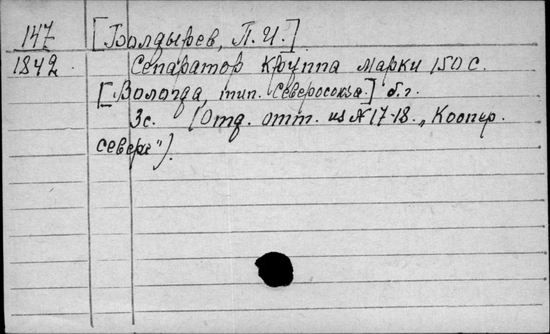 147 [Болдырев, П. И.]
1842. Сепаратор Круппа марки 150 С.
[Вологда, тип. Северосоюза.] б. г.
3 с. (Отд. отт. из № 17-18. „Коопер.
севера").